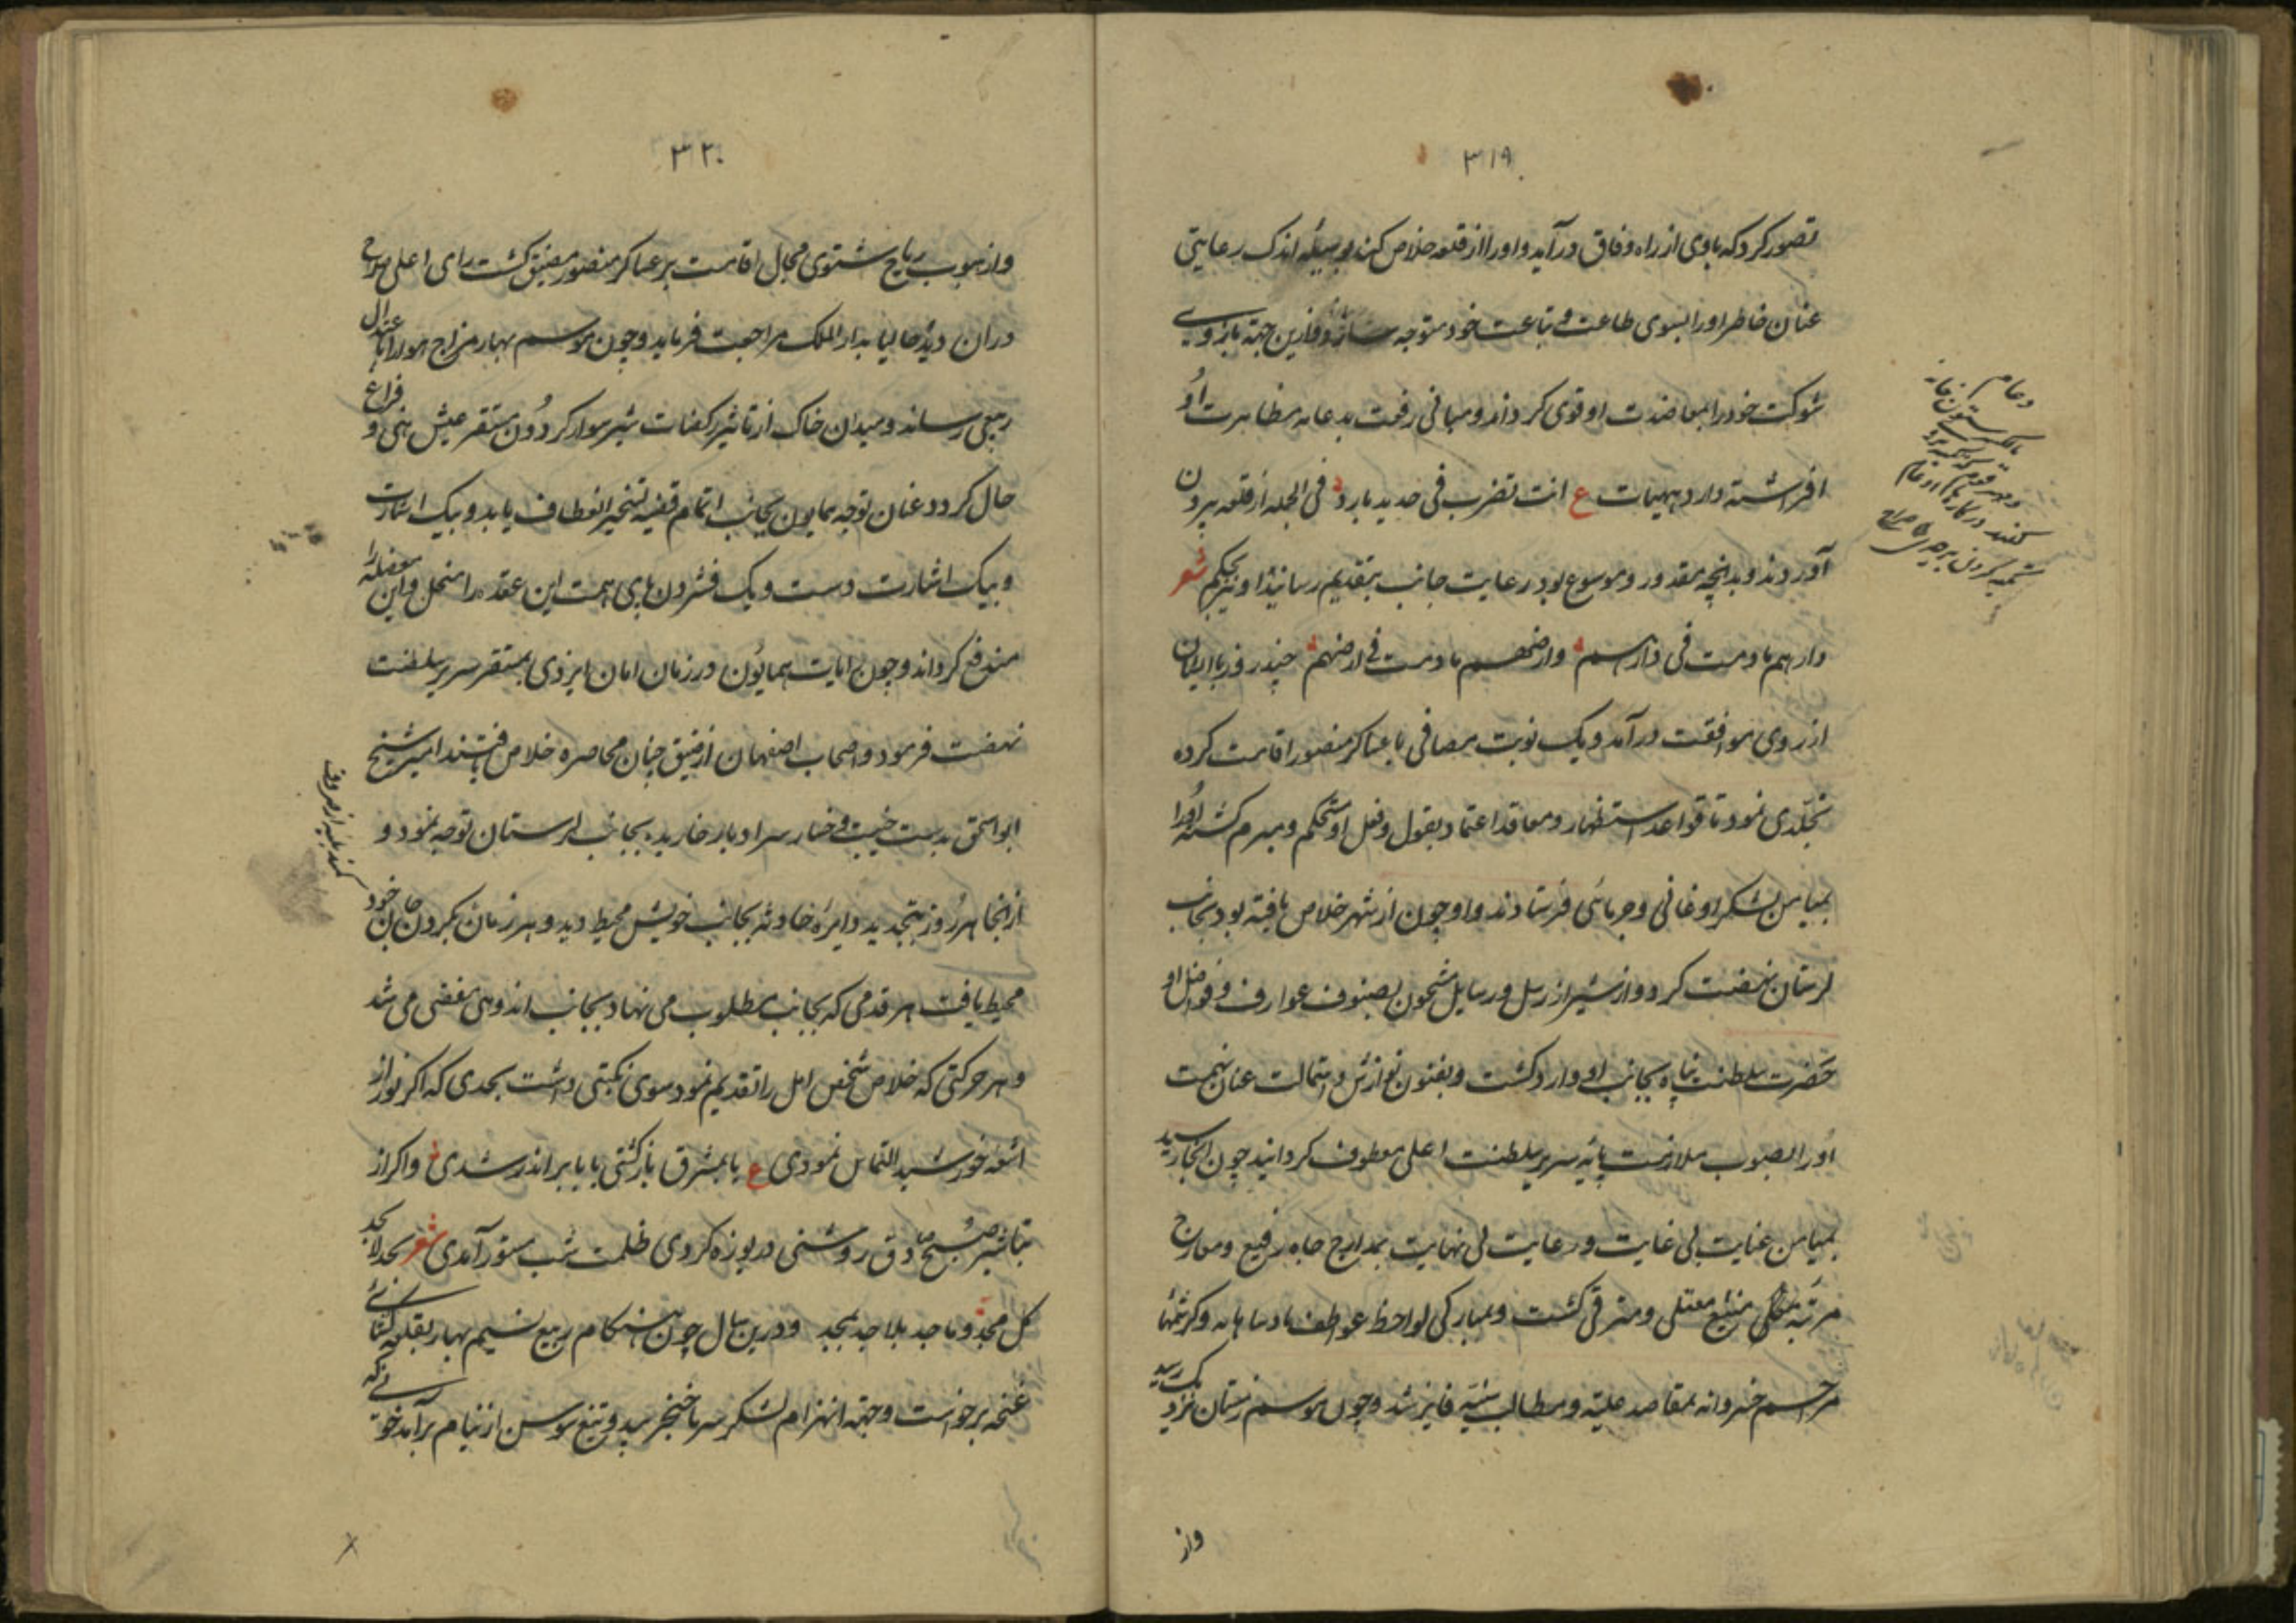 ۳۱۹
تصور کرد که باوی از راه وفاق درآید و اورا از قلعه خلاص کند و بوسیله اندک رعایتی
عنان خاطر اورا بسوی طاعت و تباعت خود متوجه سازد و ازین جهة بازوی
شوکت خود را بمعاضدت او قوی کرداند و مبانی رفعت بدعامه مظاهرت او
افراشته دارد هیهات ع انت تضرب فی حدید بارد فی الجمله از قلعه بیرون
آوردند و بدانچه مقدور و موسوع بود رعایت جانب بتقدیم رسانید او نیز بحکم شعر
دارهم مادمت فی دارهم وارضهم مادمت فی ارضهم چند روز با ایشان
از روی موافقت درآمد و یک نوبت بمصافی با عساکر منصور اقامت کرده
تجلدی نمود تا قواعد استظهار و معاقد اعتماد بقول و فعل او مستحکم و مبرم کشته اورا
بمیامن لشکر اوغانی و جرمائی فرستادند و او چون از شهر خلاص یافته بود بجانب
لرستان نهضت کرد و از شیراز رسل و رسایل مشحون بصنوف عوارف و فواضل او
حضرت سلطنت پناه بجانب او وارد کشت و بفنون نوازش و استمالت عنان نهمت
اورا بصوب ملازمت پایه سریر سلطنت اعلی معطوف کردانید چون آنجا رسید
بمیامن عنایت بی غایت و رعایت بی نهایت بمدارج جاه رفیع و معارج
مرتبه منیع معتلی و مترقی کشت و بمبارکی لواحظ عواطف پادشاهانه و کرشمهٔ
مراحم خسروانه بمقاصد علیّه و مطالب سنیّه فایز شد و چون موسم زمستان نزدیک رسید
واز
۳۲۰
واز هبوب ریاح شتوی مجال اقامت بر عساکر منصور مضیق کشت رای اعلی صلاح
دران دید که حالیا بدار الملک مراجعت فرماید و چون موسم بهار مزاج هوا را باعتدال
ربیعی رساند و میدان خاک از تاثیر رکضات شهسوار کردون مستقر عیش هنی و فراغ
حال کردد عنان توجه همایون بجانب اتمام قضیه تسخیر انعطاف یابد و بیک اشارت
و بیک اشارت دست و یک فشردن پای همت این عقده را منحل و این معضله را
مندفع کرداند و چون رایات همایون در زمان امان ایزدی بمستقر سریر سلطنت
نهضت فرمود و اصحاب اصفهان از ضیق چنان محاصره خلاص یافتند امیر شیخ
ابو اسحق بدست خیبت و خسار سر ادبار خاریده بجانب لرستان توجه نمود و
ازانجا هر روز بتجدید دایره حادثه بجانب خویش محیط دید و هر زمان بکردن جان خود
محیط یافت هر قدمی که بجانب مطلوب می نهاد بجانب اندوهی مفضی می شد
و هر حرکتی که خلاص شخص امل را تقدیم نمود سوی نکبتی داشت بحدی که اکر نور از
اشعه خورشید التماس نمودی ع یا بمشرق بازکشتی یا بابر اندر شدی و اکر از
تباشیر صبح صادق روشنی دریوزه کردی ظلمت شب مستور آمدی شعر بجد لا بجد
کل مجد و ماجد بلا جد بمجد و درین سال چون هنکام ربیع نسیم بهار بقلعه کشائی
غنچه برخواست و جهة انهزام لشکر سرما خنجر بید و تیغ سوسن از نیام برآمد